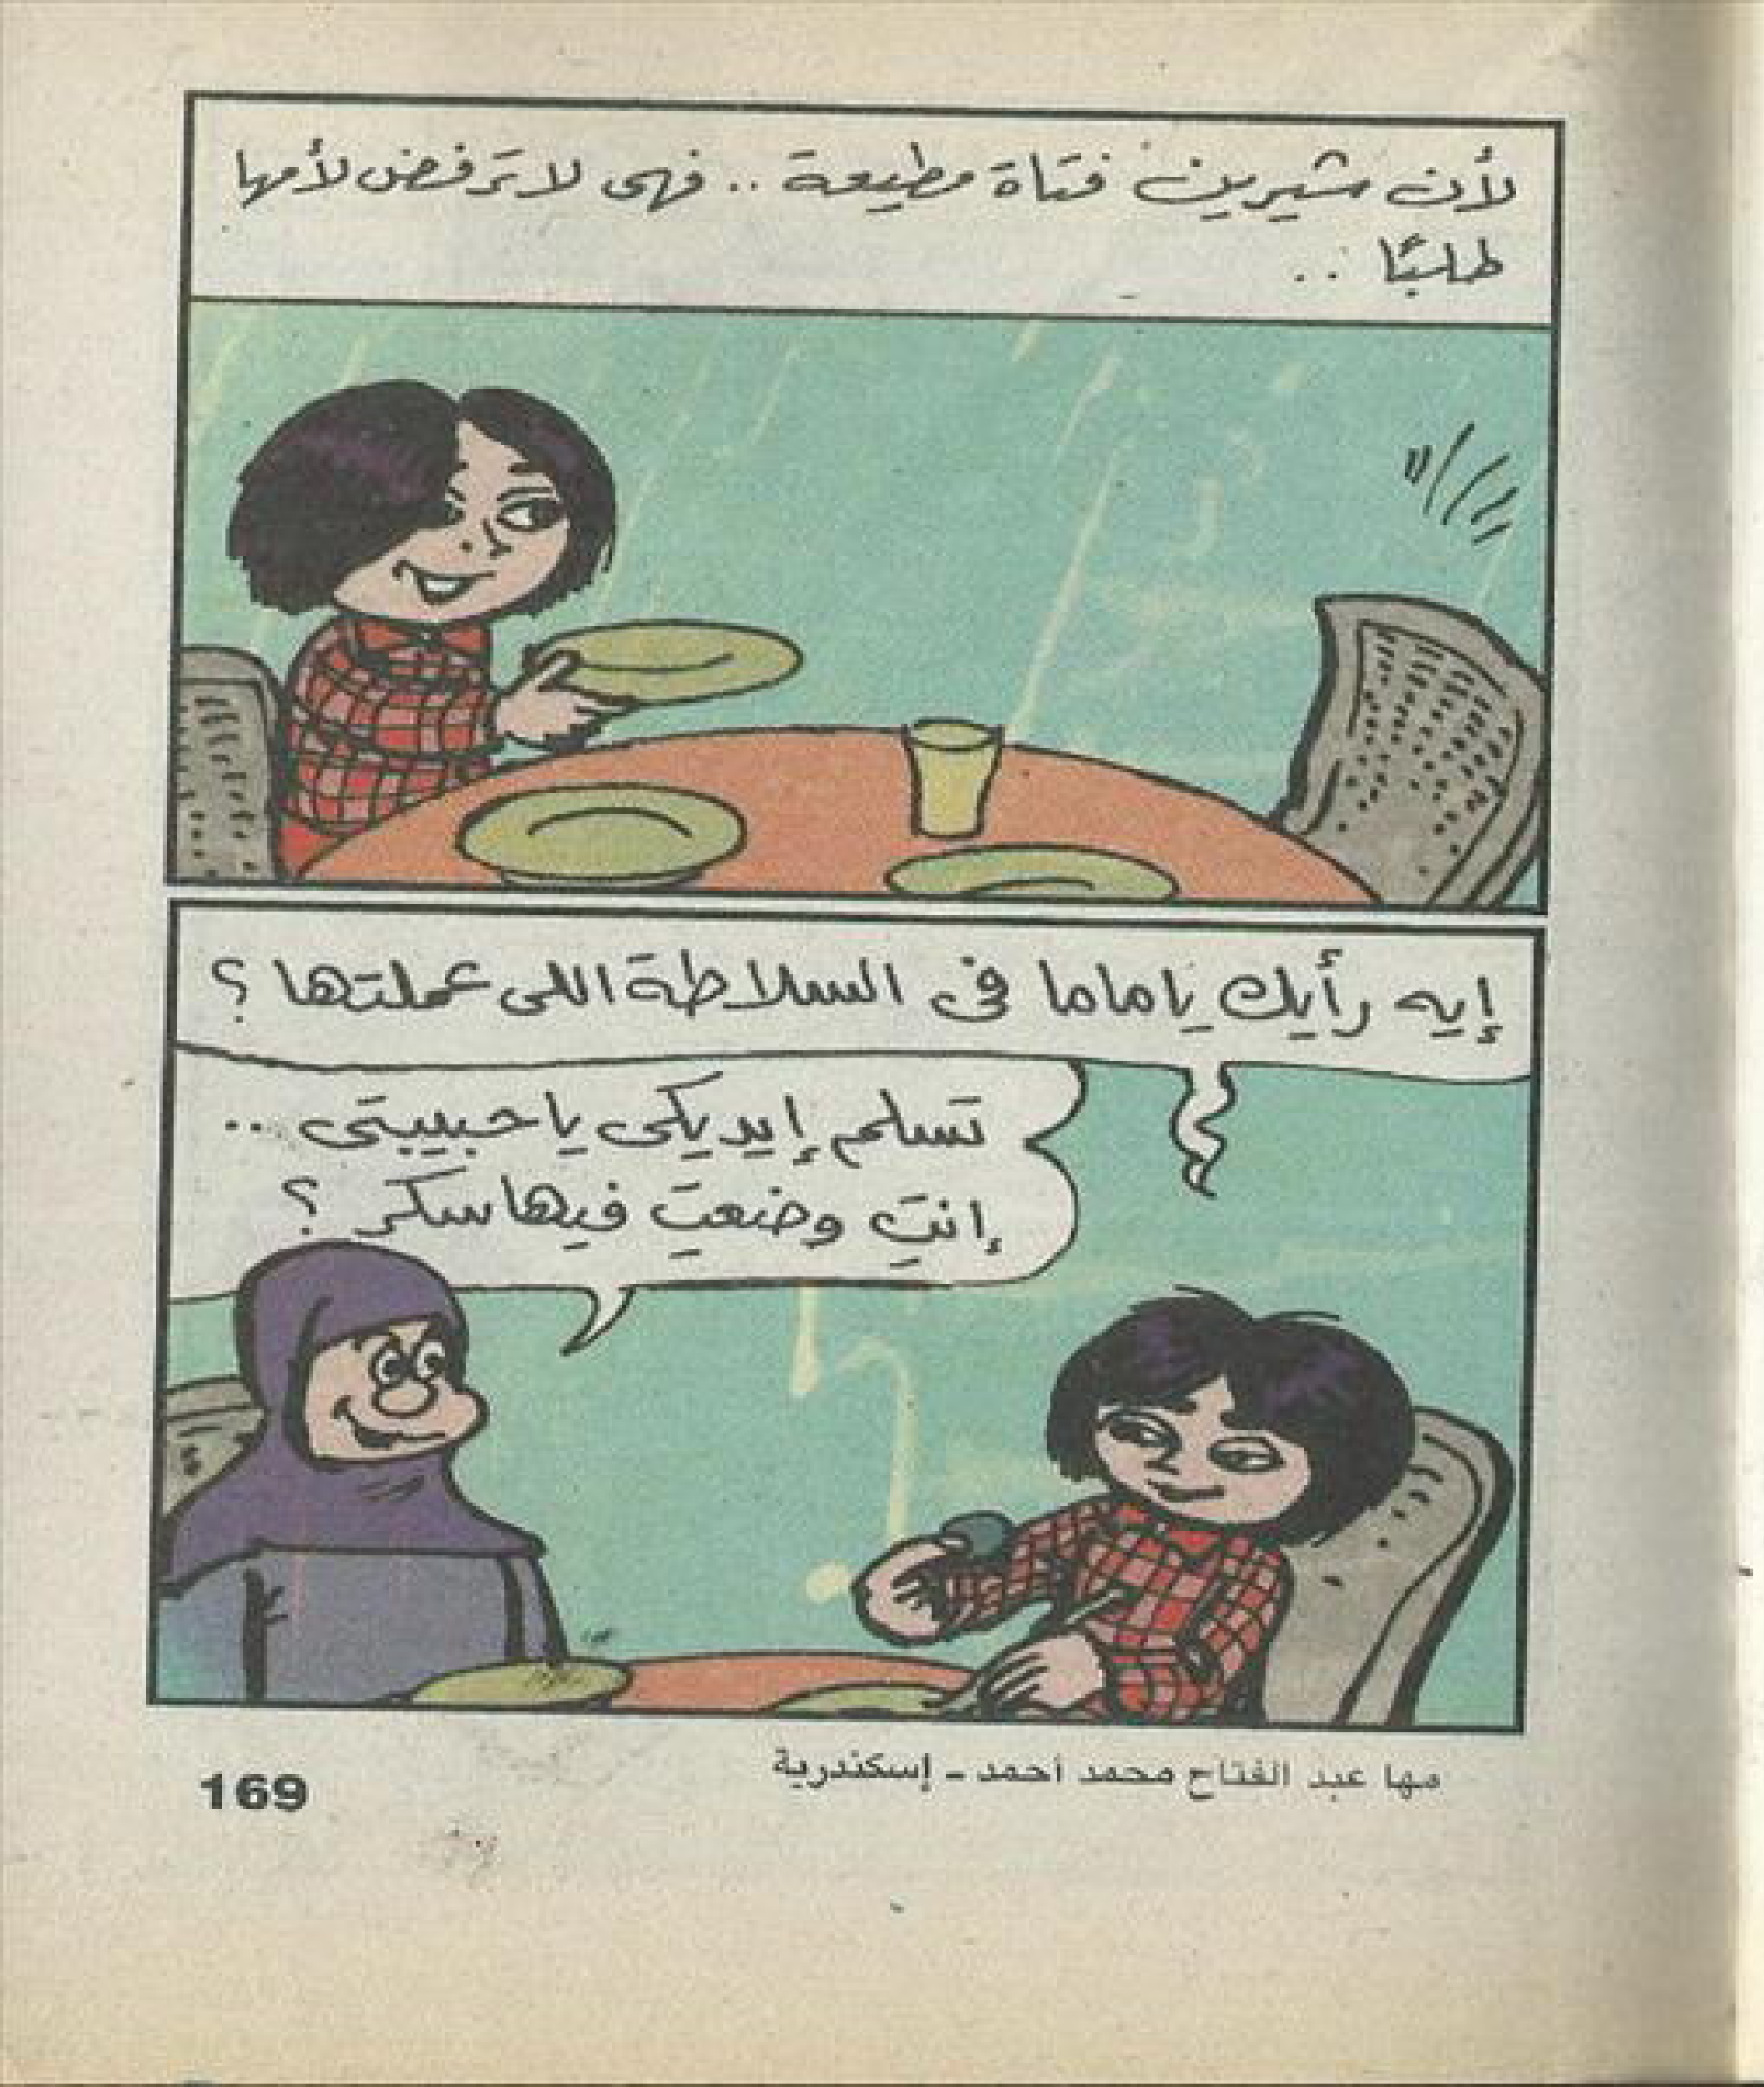 لأن شيرين فتاة مطيعة .. فهى لا ترفض لأمها
طلبًا ..
إيه رأيك يا ماما فى السلاطة اللى عملتها ؟
تسلم إيديكى يا حبيبتى ..
إنتِ وضعتِ فيها سكر ؟
مها عبد الفتاح محمد أحمد - إسكندرية
169